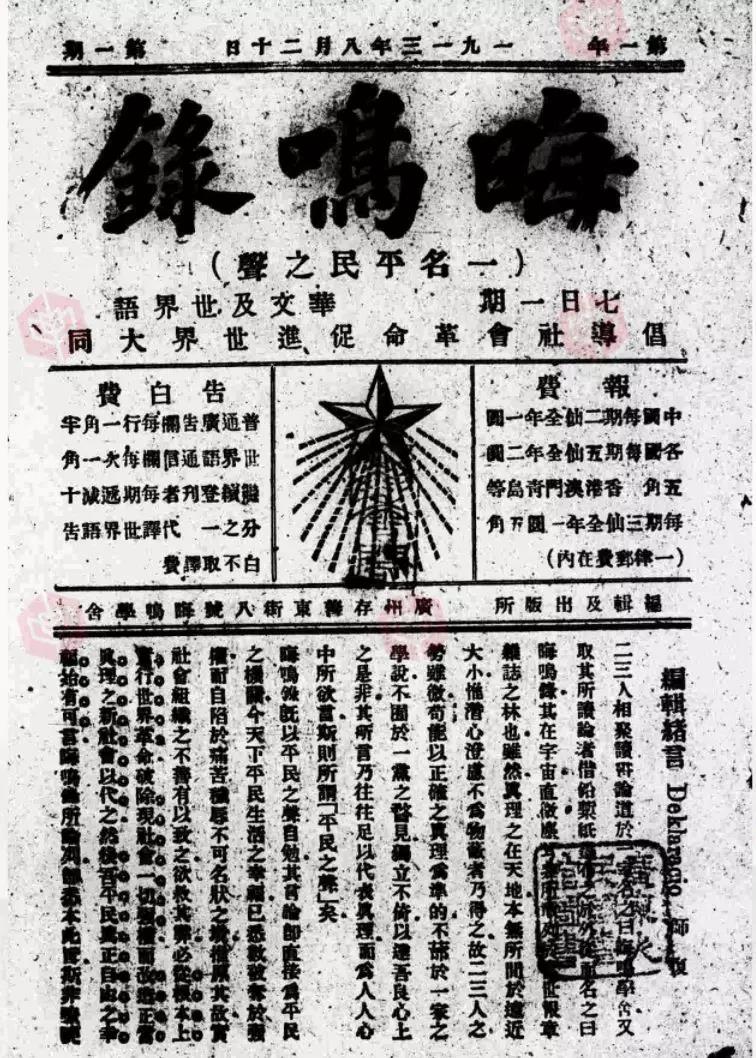 第一年 一九一三年八月二十日 第一期
晦鳴錄
(一名平民之聲)
七日一期 華文及世界語
倡導社會革命促進世界大同
報費
中國每期二仙全年一圓
各國每期五仙全年二圓
五角 香港澳門青島等
每期三仙全年一圓五角
(一律郵費在內)
告白費
普通廣告欄每行一角半
世界語通信欄每次一角
繼續登刊者每期遞減十
分之一 代譯世界語告
白不取譯費
編輯及出版所 廣州存善東街八號晦鳴學舍
編輯緒言 Deklaracio 師復
二三人相聚讀書論道於一名之曰晦鳴學舍又
取其所議論者借鉛槧紙之於外從而名之曰
晦鳴錄其在宇宙直微塵報章
雜誌之林也雖然真理之在天地本無所間於遠近
大小惟潛心澄慮不為物蔽者乃得之故二三人之
勞雖微苟能以正確之真理為準的不於一家之
學說不囿於一黨之瞽見獨立不倚以達吾良心上
之是非其所言乃往往足以代表真理而為人人心
中所欲言斯則所謂「平民之聲」矣
晦鳴錄既以平民之聲自勉其言論即直接為平民
之機關今天下平民生活之幸福已悉數被奪於強
權而自陷於痛苦穢辱不可名狀之境推原其故實
社會組織之不善有以致之欲救其弊必從根本上
實行世界革命破除現社會一切強權而改造正當
真理之新社會以代之然後吾平民真正自由之幸
福始有可言晦鳴錄所論列即悉本此旨斯非